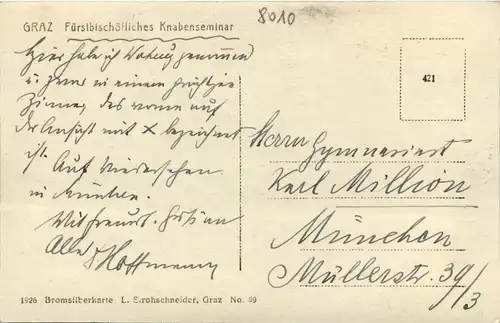 8010
GRAZ Fürstbischöfliches Knabenseminar
Hier habe ich Wohnung genommen
u. zwar in einem
Zimmer, das vorne auf
der Ansicht mit X bezeichnet
ist.
Auf Wiedersehen
in München.
Mit freundl. Grüßen an
Alle
Hoffmann
421
Herrn Gymnasiast
Karl Million
München
Müllerstr. 39/3
1926 Bromsilberkarte L. Strohschneider, Graz No. 89